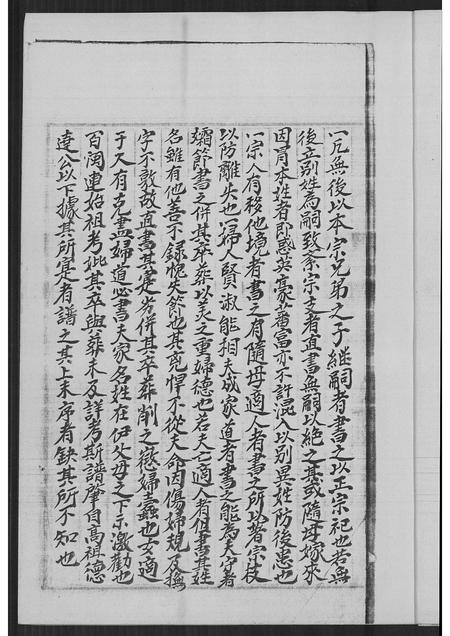 一凡無後以本宗兄弟之子継嗣者書之以正宗祀也若無
後立別姓為嗣致紊宗支者直書無嗣以絕之甚或隨母嫁來
因冐本姓者即感英豪蕃富亦不許混入以別異姓防後患也
一宗人有移他境者書之有隨母適人者書之所以著宗枝
以防離失也婦人賢淑能相夫成家道者書之能為夫守者
孀節書之併其卒葬以美之重婦德也若夫亡適人者但書其姓
名雖有他善不錄愧失節也其兇悍不從夫命因傷婦規及撫
字不敦故直書其寔劣併其卒葬削之懲婦蠹也女適
于人有克盡婦道必書夫家名姓在伊父母之下示激勸也
百閱連始祖考妣其卒與葬未及詳考斯譜肇自高祖德
達公以下據其所寔者譜之其上未序者缺其所不知也